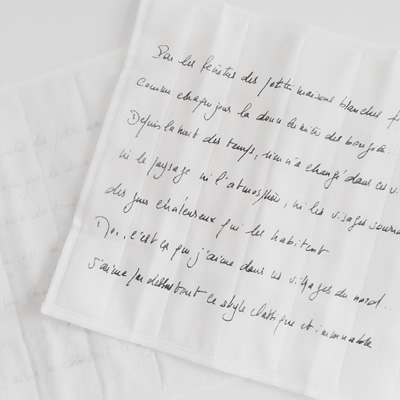 Par les fenêtres des petites maisons blanches
Comme chaque jour la douce lumière des bougies
Depuis la nuit des temps, rien n'a changé dans ces
ni le paysage ni l'atmosphère, ni les visages
des gens chaleureux qui les habitent
c'est ça que j'aime dans ces villages du nord...
J'aime par dessus tout ce style classique et immuable